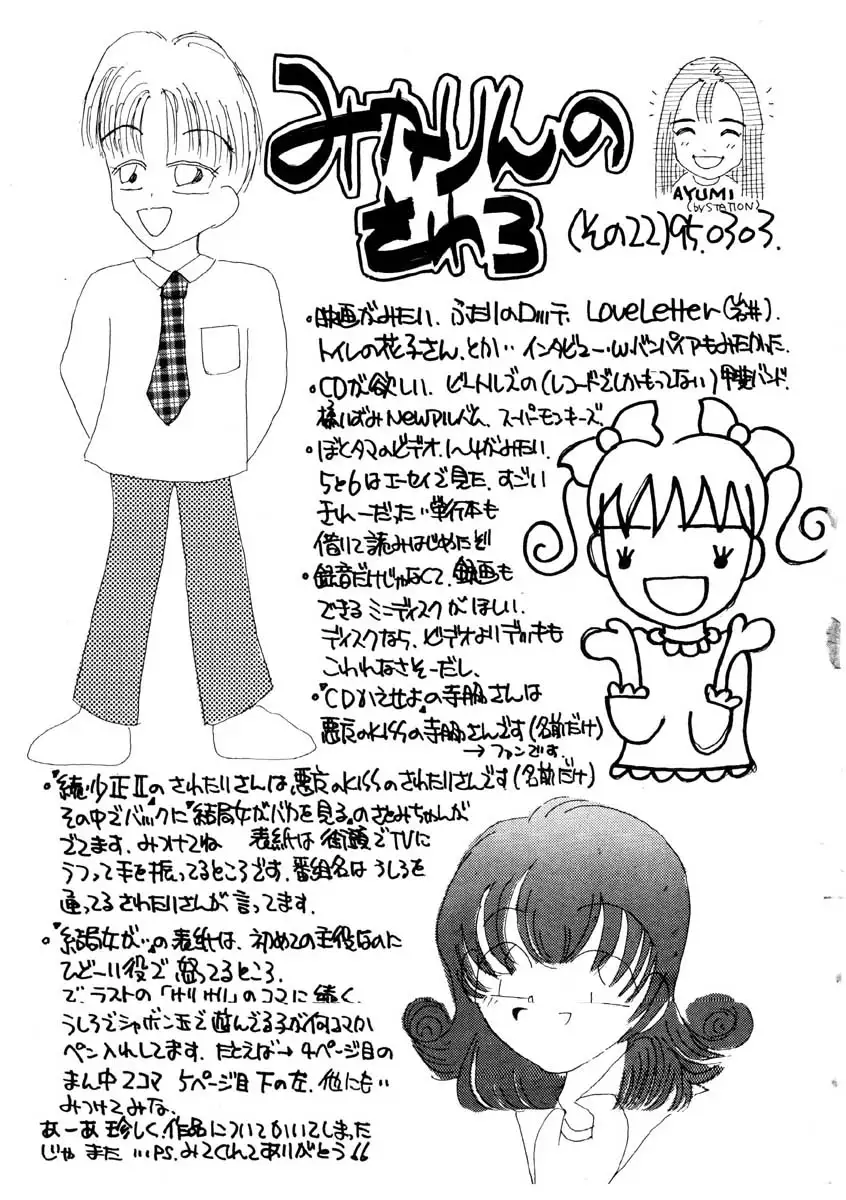 みなりんの
されろ
AYUMI
(by STATION)
(その22)95.0303.
・映画がみたい、ふたりのロッテ、LoveLetter(岩井).
トイレの花子さん、とか…インタビュー・w・バンパイアもみたかった.
・CDが欲しい、ビートルズの(レコードでしかもってない)甲斐バンド、
橘いずみNewアルバム、スーパーモンキーズ.
・ぼくタマのビデオ、1〜4がみたい.
5と6はエーセイで見た、すごい
きれーだった…単行本も
借りて読みはじめたぞ
・録音だけじゃなくて、録画も
できるミニディスクがほしい.
ディスクなら、ビデオよりデッキも
こわれなさそーだし、
・『CDかえせよ』の寺脇さんは
悪京のKISSの寺脇さんです(名前だけ)
→ファンです.
・『続・少正II』のさわたりさんは悪京のKISSのさわたりさんです(名前だけ)
その中でバックに『結局女がバカを見る』のさとみちゃんが
でてます、みつけてね 表紙は街頭でTVに
うつって手を振ってるところです.番組名はうしろを
通ってるさわたりさんが言ってます.
・『結局女が…』の表紙は、初めての主役なのに
ひどーい役で怒ってるところ.
で、ラストの「けりけり」のコマに続く、
うしろでシャボン玉で遊んでる子が何コマか
ペン入れしてます.たとえば→4ページ目の
まん中2コマ 5ページ目下の左、他にも…
みつけてみな、
あーあ珍しく、作品についてかいてしまった
じゃ また …PS.みてくれてありがとう!!